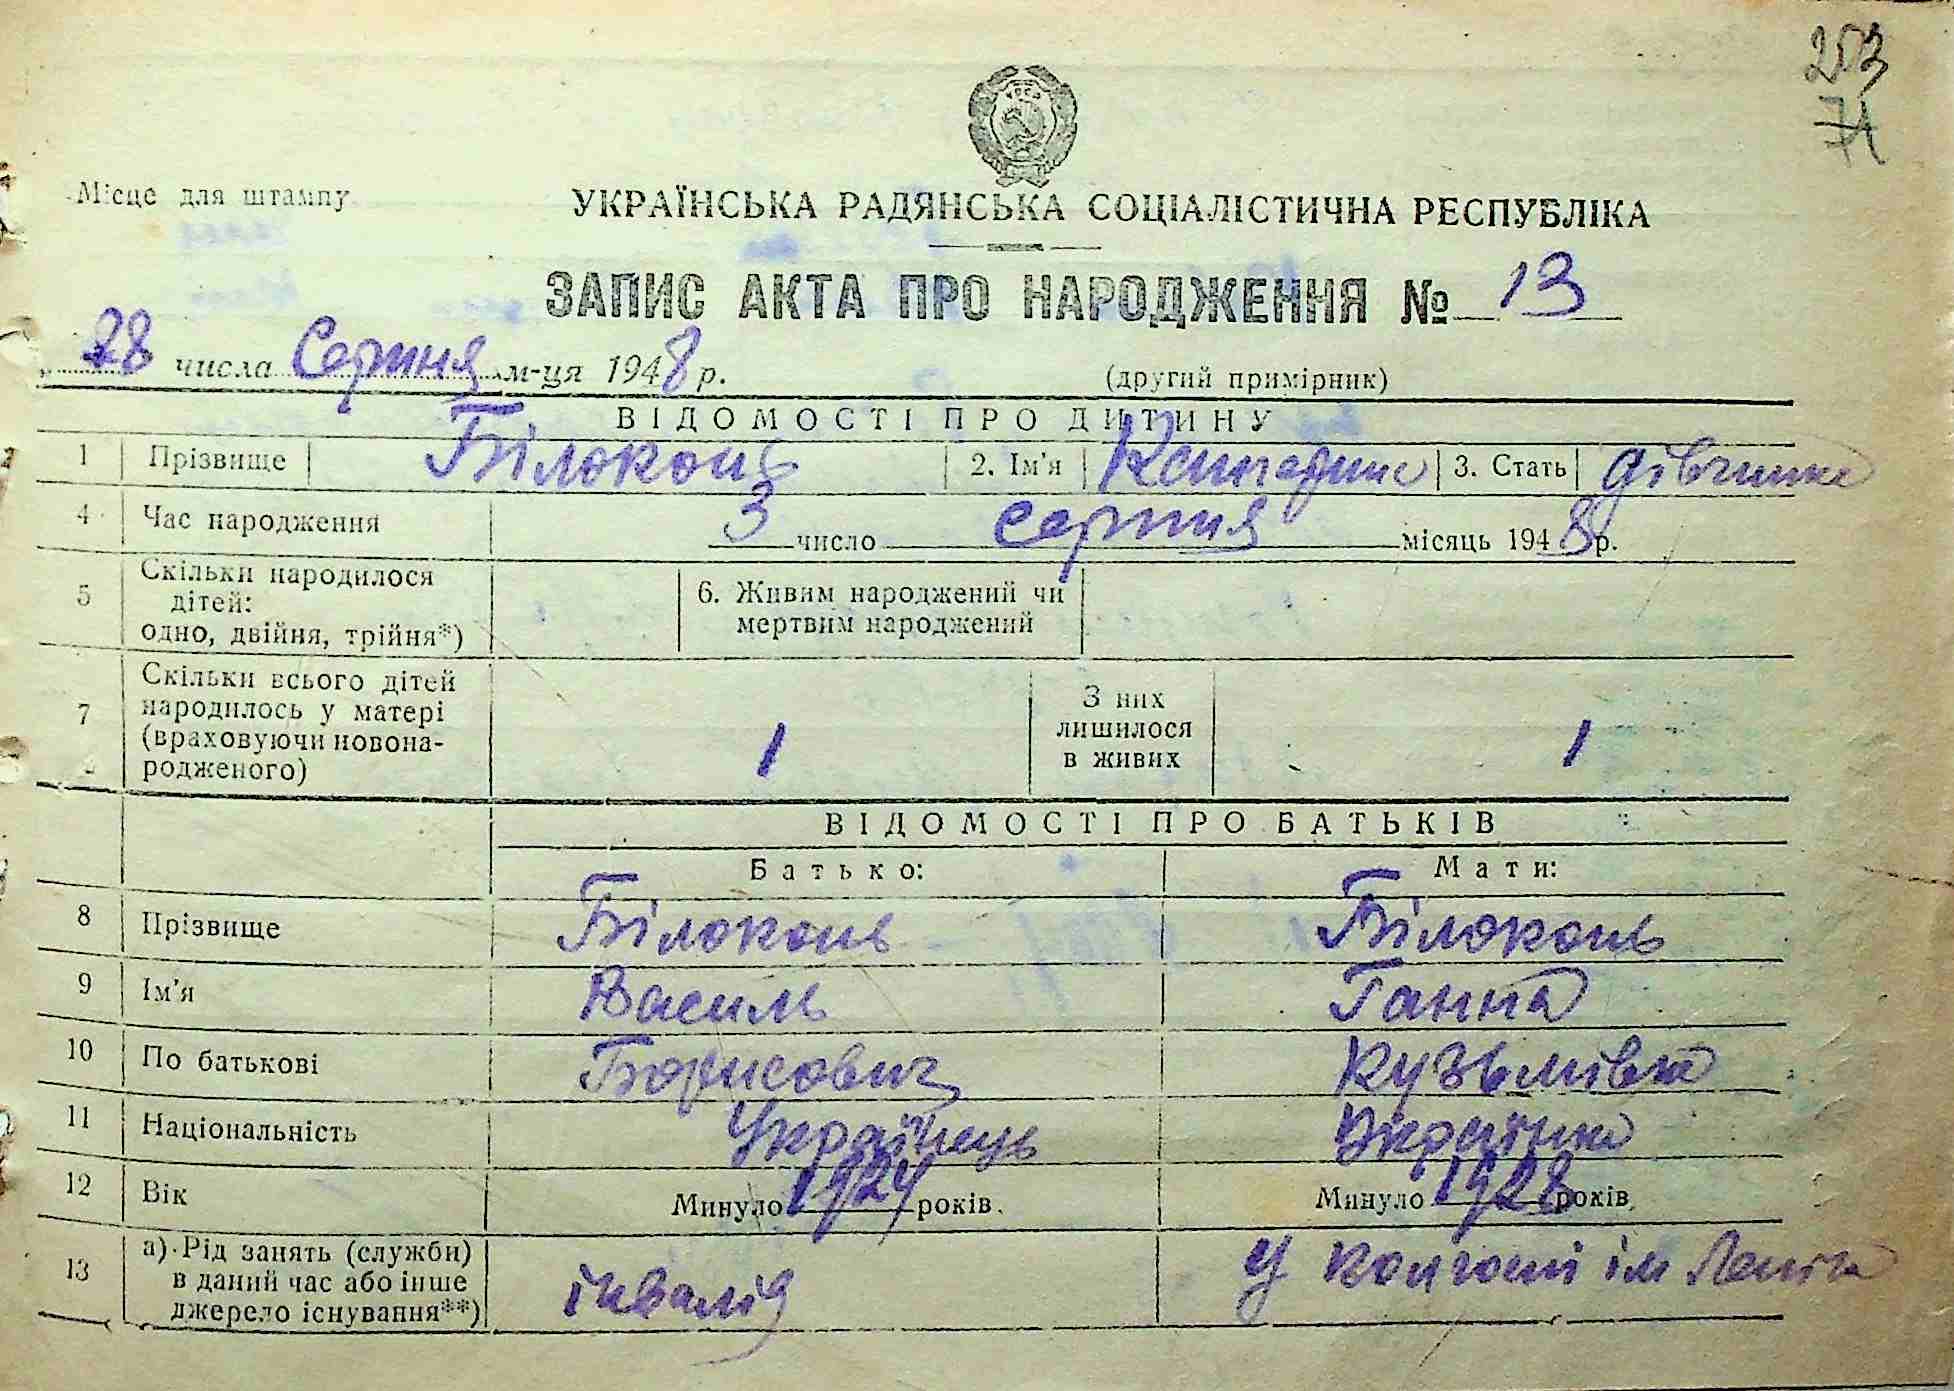 253
71
УРСР
Місце для штампу
УКРАЇНСЬКА РАДЯНСЬКА СОЦІАЛІСТИЧНА РЕСПУБЛІКА
ЗАПИС АКТА ПРО НАРОДЖЕННЯ № 13
„28 числа Серпня м-ця 1948 р.
(другий примірник)
ВІДОМОСТІ ПРО ДИТИНУ
1 Прізвище Білоконь 2. Ім'я Катерина 3. Стать дівчинка
4 Час народження 3 число серпня місяць 1948 р.
5 Скільки народилося
дітей:
одно, двійня, трійня*)
6. Живим народжений чи
мертвим народжений
7 Скільки всього дітей
народилось у матері
(враховуючи новона-
родженого)
1
З них
лишилося
в живих
1
ВІДОМОСТІ ПРО БАТЬКІВ
Батько: Мати:
8 Прізвище Білоконь Білоконь
9 Ім'я Василь Ганна
10 По батькові Борисович Кузьмівна
11 Національність Українець Українка
12 Вік Минуло 1924 років. Минуло 1928 років.
13 а) Рід занять (служби)
в даний час або інше
джерело існування**)
інвалід
У колгоспі ім Леніна